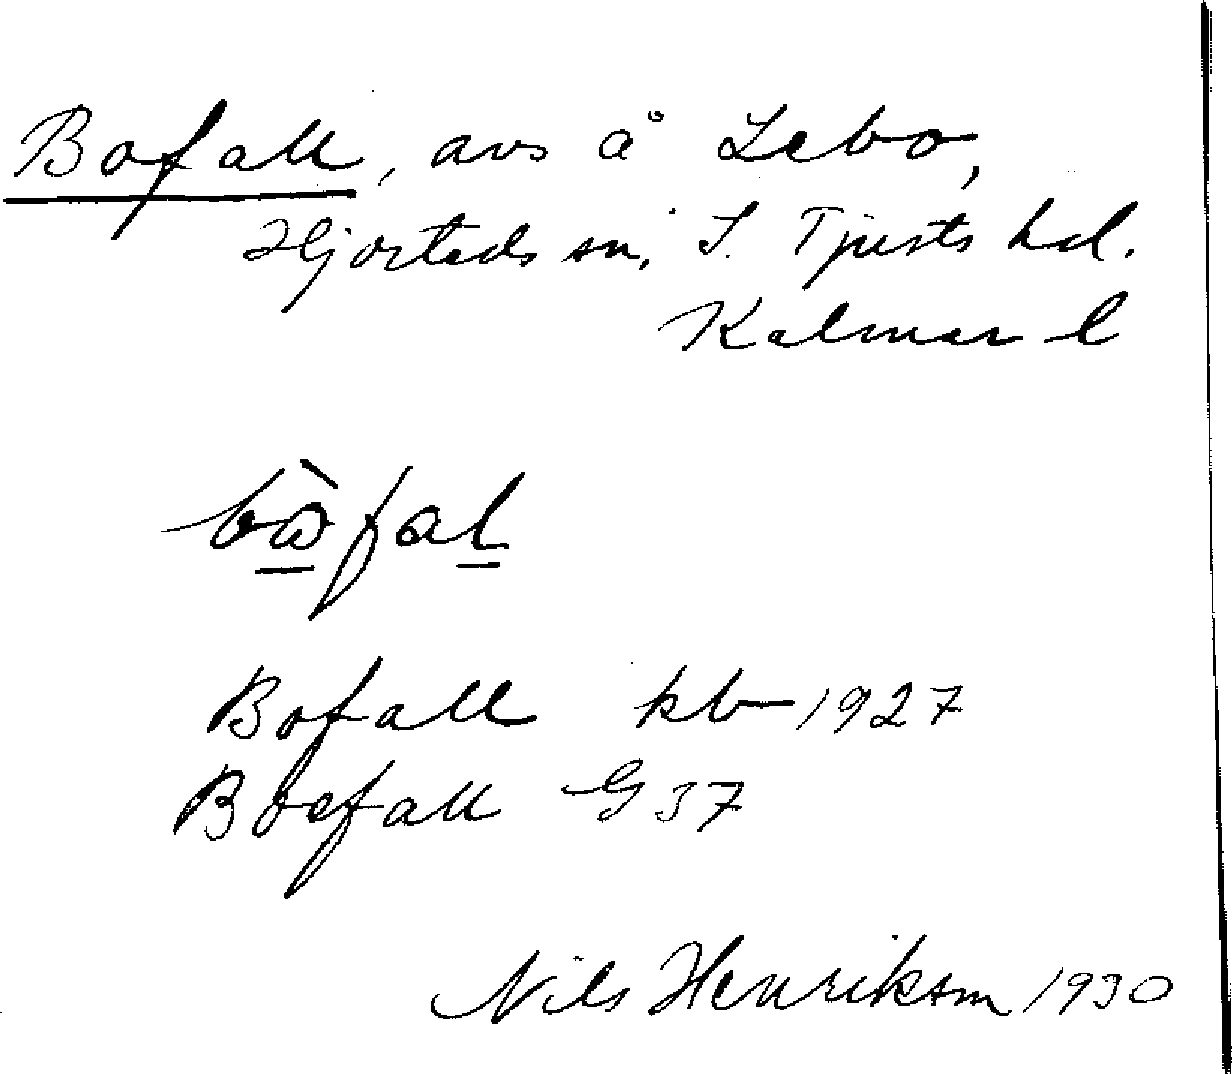 Bofall, avs å Lebo,
Hjorteds sn, S. Tjusts hd.
Kalmar l
bòfal
Bofall kb 1927
Boefall G 37
Nils Henrikson 1930